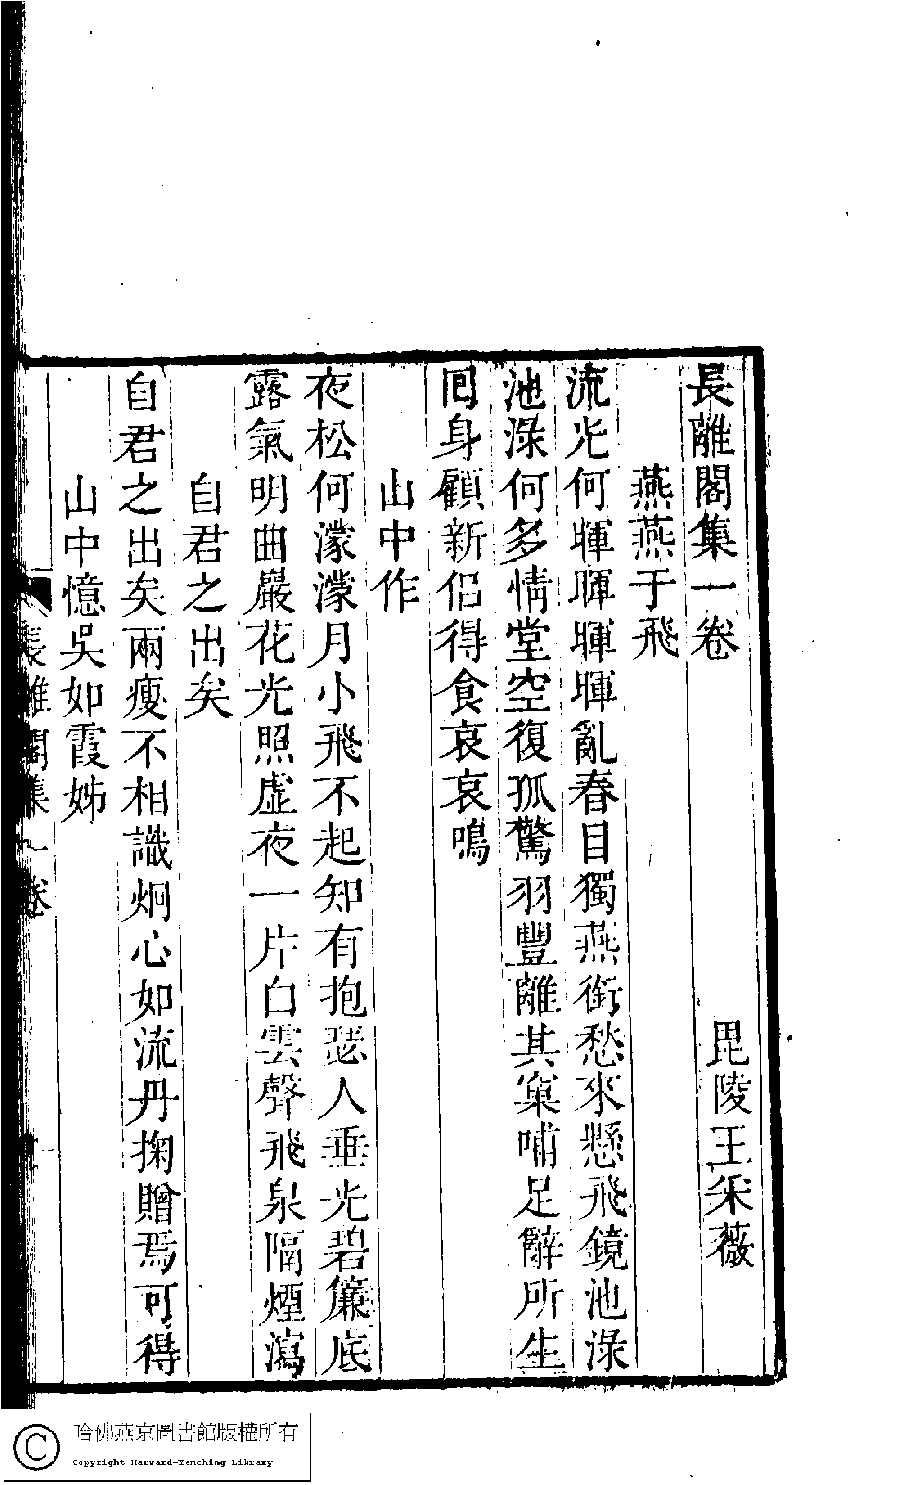 長離閣集一卷
毘陵王采薇
燕燕于飛
流光何暉暉暉暉亂春目獨燕銜愁來懸飛鏡池淥
池淥何多情堂空復孤驚羽豐離其窠哺足辭所生
囘身顧新侶得食哀哀鳴
山中作
夜松何濛濛月小飛不起知有抱瑟人垂光碧簾底
露氣明曲巖花光照虛夜一片白雲聲飛泉隔煙瀉
自君之出矣
自君之出矣兩瘦不相識炯心如流丹掬贈焉可得
山中憶吳如霞姊
長離閣集一卷
哈佛燕京圖書館版權所有
Copyright Harvard-Yenching Library